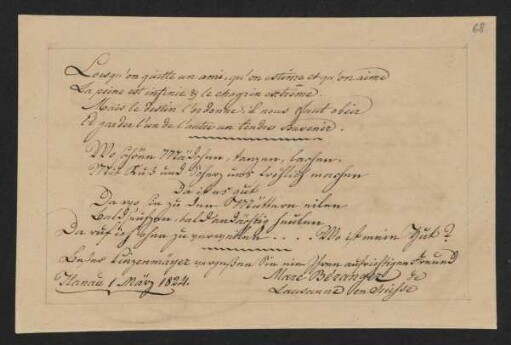 68
Lorsqu'on quitte un ami, qu'on estime et qu'on aime
La peine est infinie & le chagrin extrême
Mais le Destin l'ordonne, il nous faut obéir
Et garder l'un de l'autre un tendre Souvenir.
Wo schöne Mädchen, tanzen, lachen,
Mit Kuß und Scherz uns fröhlich machen
Da ist es gut
Da wo sie zu den Müttern eilen
Bald, bald andächtig heulen
Da ruf ich ohne zu .... Wo ist mein Hut?
Lieber vergeßen Sie nie Ihren aufrichtigen Freund
Hanau 1 März 1824.
Marc Béranger de
Lausanne en Suisse